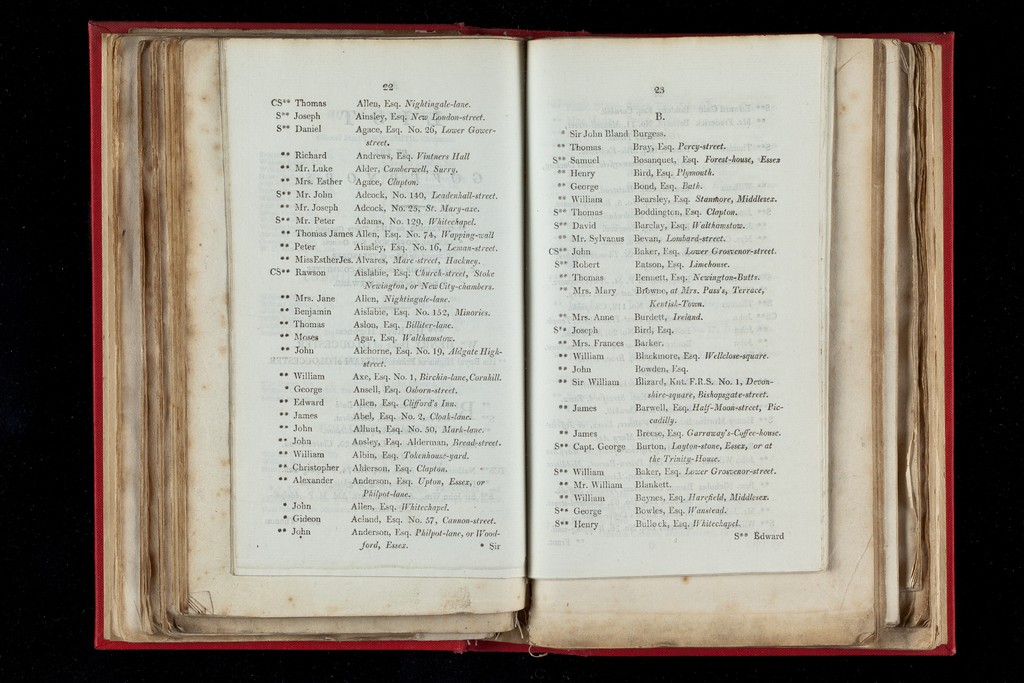 22
CS** Thomas Allen, Esq. Nightingale-lane.
S** Joseph Ainsley, Esq. New London-street.
S** Daniel Agace, Esq. No. 26, Lower Gower-
street.
** Richard Andrews, Esq. Vintners Hall
** Mr. Luke Alder, Camberwell, Surry.
** Mrs. Esther Agace, Clapton.
S** Mr. John Adcock, No. 140, Leadenhall-street.
** Mr. Joseph Adcock, No. 25, St. Mary-axe.
S** Mr. Peter Adams, No. 129, Whitechapel.
** Thomas James Allen, Esq. No. 74, Wapping-wall
** Peter Ainsley, Esq. No. 16, Leman-street.
** Miss Esther Jes. Alvares, Mare-street, Hackney.
CS** Rawson Aislabie, Esq. Church-street, Stoke
Newington, or New City-chambers.
** Mrs. Jane Allen, Nightingale-lane.
** Benjamin Aislabie, Esq. No. 152, Minories.
** Thomas Aslon, Esq. Billiter-lane.
** Moses Agar, Esq. Walthamstow.
** John Alchorne, Esq. No. 19, Aldgate High-
street.
** William Axe, Esq. No. 1, Birchin-lane, Cornhill.
* George Ansell, Esq. Osborn-street.
** Edward Allen, Esq. Clifford's Inn.
** James Abel, Esq. No. 2, Cloak-lane.
** John Allnut, Esq. No. 50, Mark-lane.
** John Ansley, Esq. Alderman, Bread-street.
** William Albin, Esq. Tokenhouse-yard.
** Christopher Ahlerson, Esq. Clapton.
** Alexander Anderson, Esq. Upton, Essex, or
Philpot-lane.
* John Allen, Esq. Whitechapel.
* Gideon Acland, Esq. No. 57, Cannon-street.
** John Anderson, Esq. Philpot-lane, or Wood-
ford, Essex. * Sir
23
B.
* Sir John Bland Burgess.
** Thomas Bray, Esq. Percy-street.
S** Samuel Bosanquet, Esq. Forest-house, Essex
** Henry Bird, Esq. Plymouth.
** George Bond, Esq. Bath.
** William Bearsley, Esq. Stanmore, Middlesex.
S** Thomas Boddington, Esq. Clapton.
S** David Barclay, Esq. Walthamstow.
** Mr. Sylvanus Bevan, Lombard-street.
CS** John Baker, Esq. Lower Grosvenor-street.
S** Robert Batson, Esq. Limehouse.
** Thomas Bennett, Esq. Newington-Butts.
** Mrs. Mary Browne, at Mrs. Pass's, Terrace,
Kentish-Town.
** Mrs. Anne Burdett, Ireland.
S** Joseph Bird, Esq.
** Mrs. Frances Barker.
** William Blackmore, Esq. Wellclose-square.
** John Bowden, Esq.
** Sir William Blizard, Knt. F.R.S. No. 1, Devon-
shire-square, Bishopsgate-street.
** James Barwell, Esq. Half-Moon-street, Pic-
cadilly.
** James Breese, Esq. Garraway's-Coffee-house.
S** Capt. George Burton, Layton-stone, Essex, or at
the Trinity-House.
S** William Baker, Esq. Lower Grosvenor-street.
** Mr. William Blankett.
** William Baynes, Esq. Harefield, Middlesex.
S** George Bowles, Esq. Wanstead.
S** Henry Bullock, Esq. Whitechapel.
S** Edward